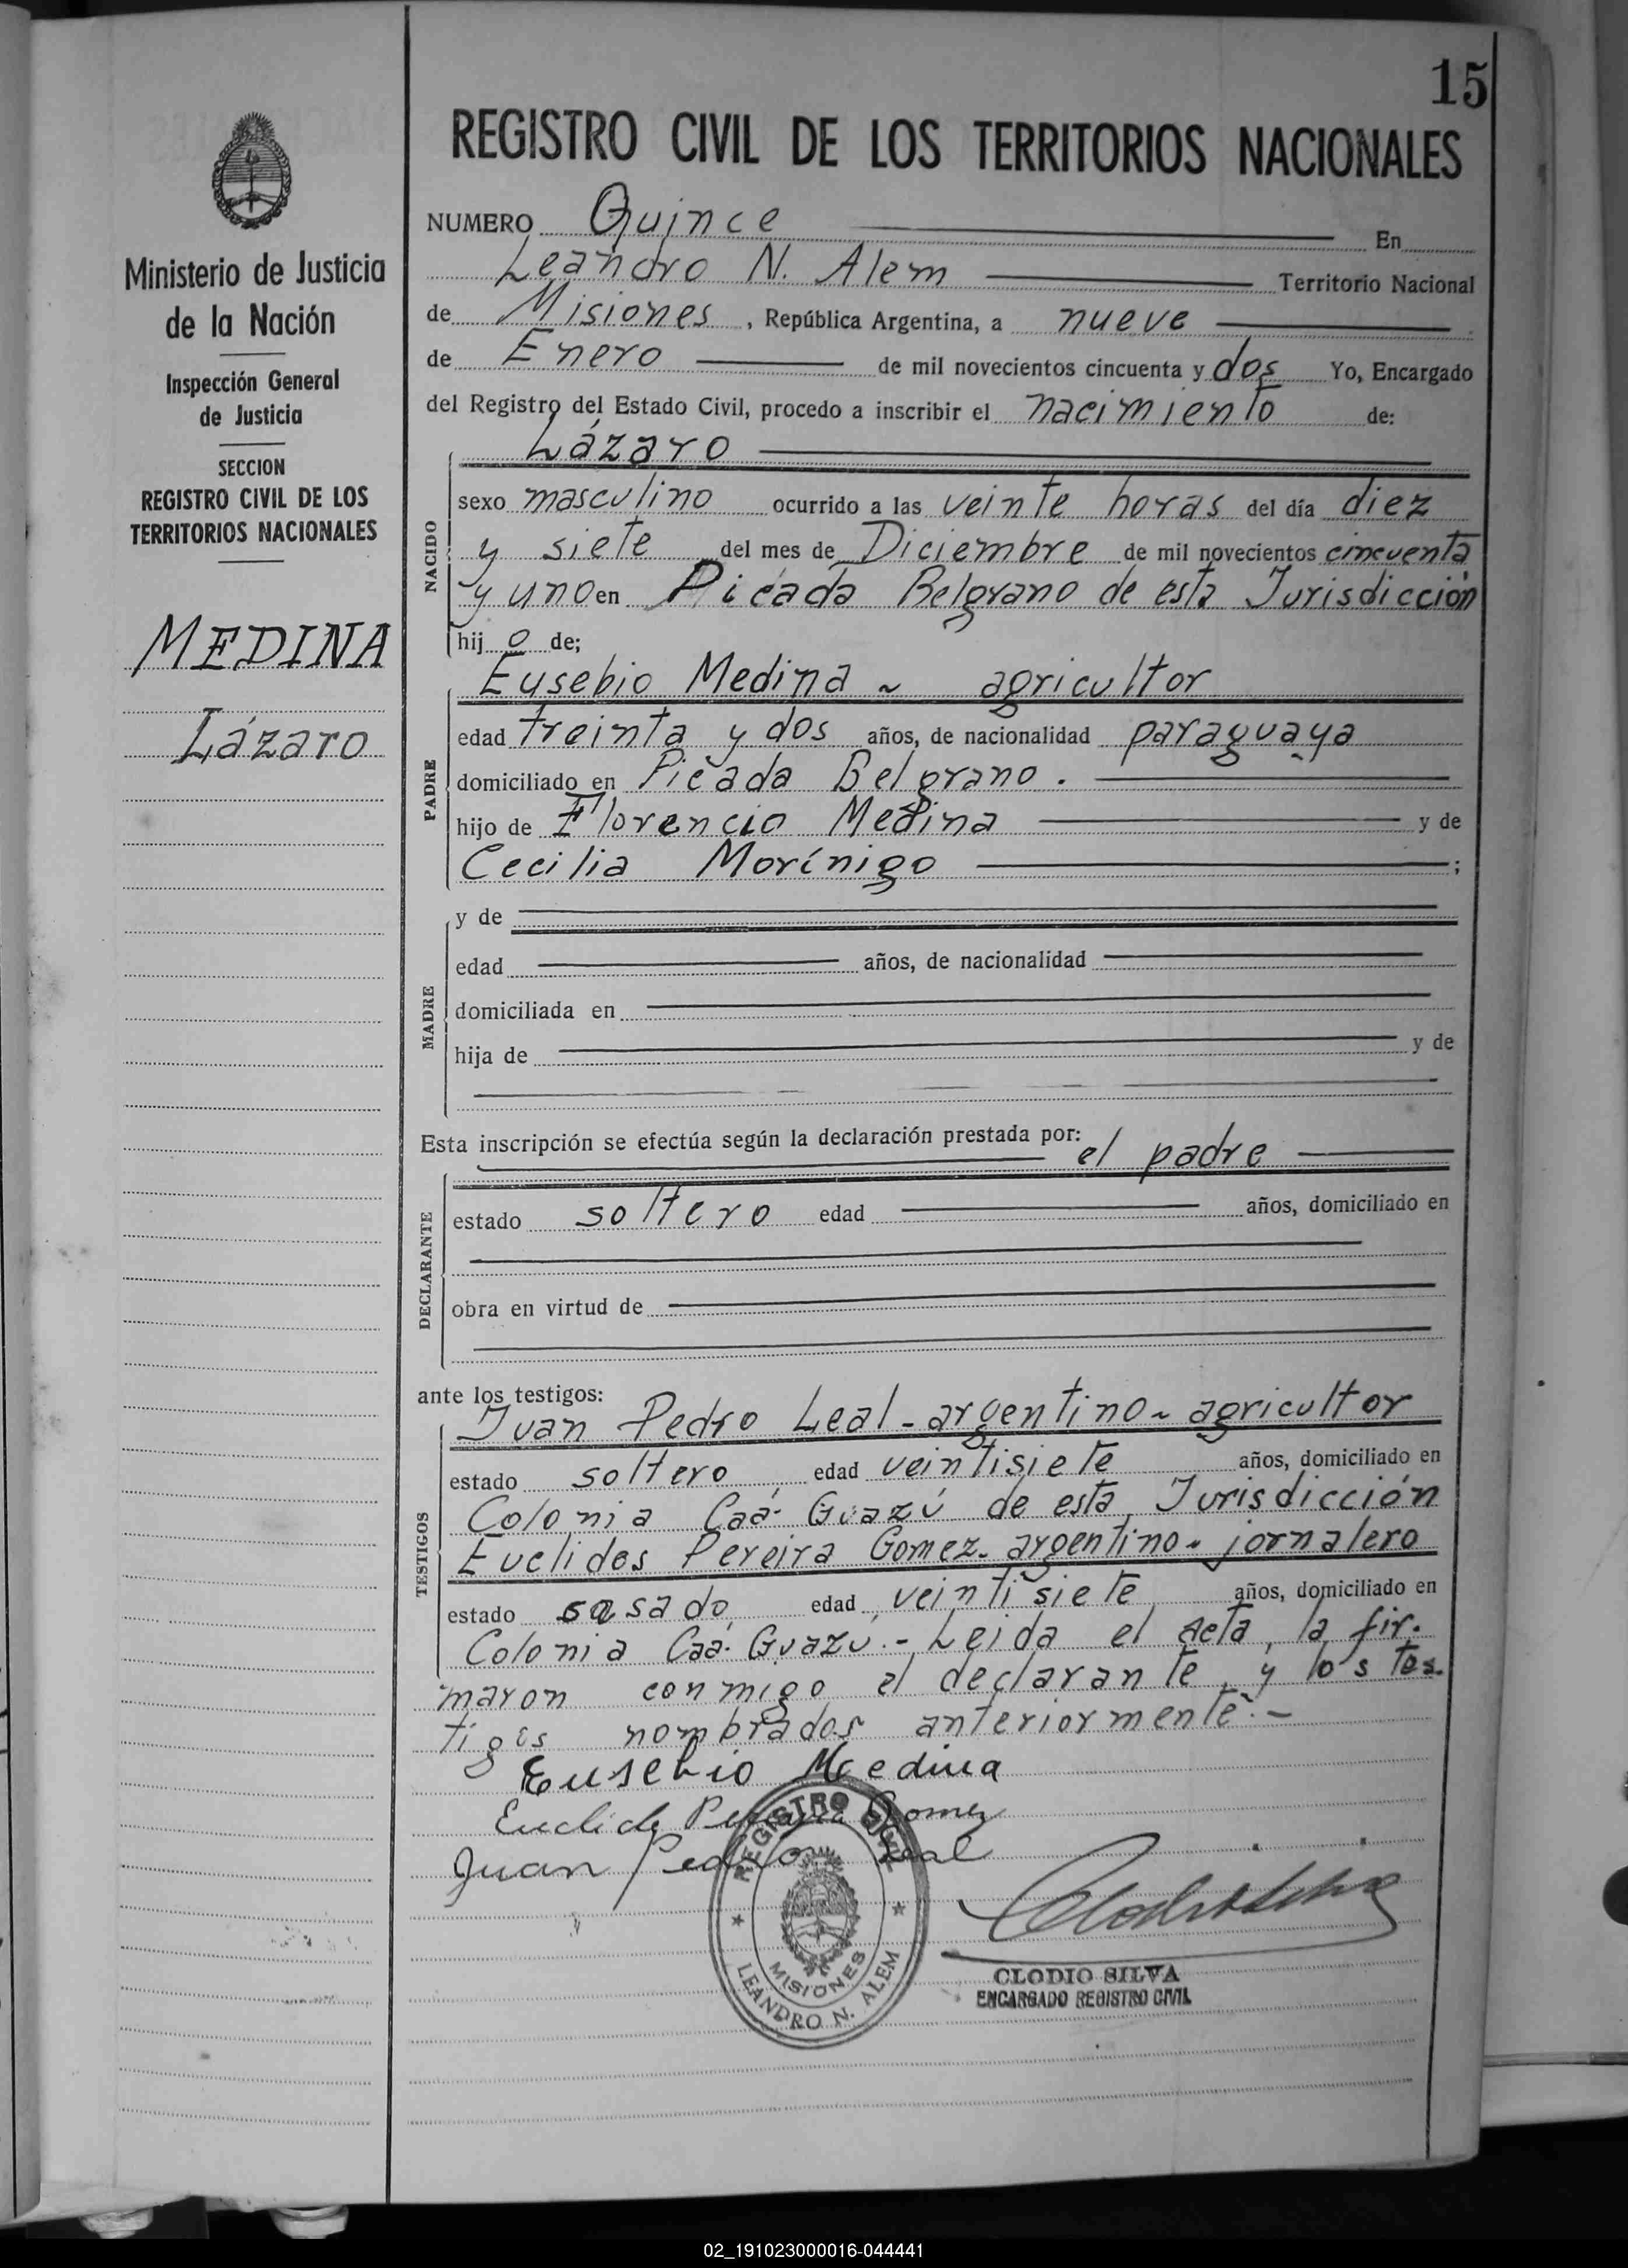 15
REGISTRO CIVIL DE LOS TERRITORIOS NACIONALES
Ministerio de Justicia
de la Nación
Inspección General
de Justicia
SECCION
REGISTRO CIVIL DE LOS
TERRITORIOS NACIONALES
MEDINA
Lázaro
NUMERO Quince En
Leandro N. Alem Territorio Nacional
de Misiones, República Argentina, a nueve
de Enero de mil novecientos cincuenta y dos Yo, Encargado
del Registro del Estado Civil, procedo a inscribir el nacimiento de:
Lázaro
NACIDO
sexo masculino ocurrido a las veinte horas del día diez
y siete del mes de Diciembre de mil novecientos cincuenta
y uno en Picada Belgrano de esta Jurisdicción
hijo de;
PADRE
Eusebio Medina ~ agricultor
edad treinta y dos años, de nacionalidad paraguaya
domiciliado en Picada Belgrano.
hijo de Florencio Medina y de
Cecilia Morínigo ;
MADRE
y de
edad años, de nacionalidad
domiciliada en
hija de y de
Esta inscripción se efectúa según la declaración prestada por:
el padre
DECLARANTE
estado soltero edad años, domiciliado en
obra en virtud de
ante los testigos:
TESTIGOS
Juan Pedro Leal - argentino ~ agricultor
estado soltero, edad veintisiete años, domiciliado en
Colonia Caá-Guazú de esta Jurisdicción
Euclides Pereira Gomez - argentino - jornalero
estado casado, edad veintisiete, años, domiciliado en
Colonia Caá-Guazú.- Leida el acta, la fir-
maron conmigo el declarante y los tes-
tigos nombrados anteriormente.-
Eusebio Medina
Euclides Pereira Gomez
Juan Pedro Leal
REGISTRO CIVIL
MISIONES
LEANDRO N. ALEM
CLODIO SILVA
ENCARGADO REGISTRO CIVIL
02_191023000016-044441